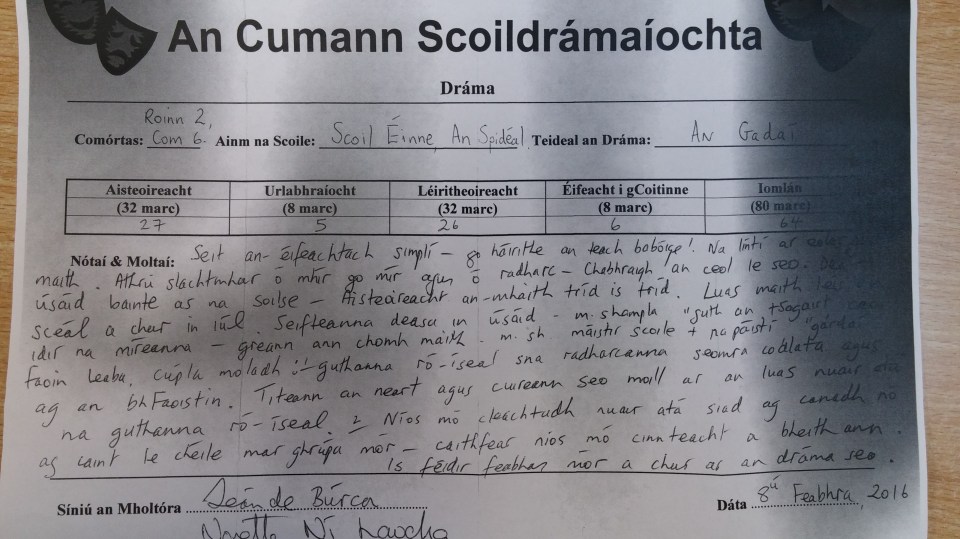 An Cumann Scoildrámaíochta
Dráma
Roinn 2,
Comórtas: Com 6. Ainm na Scoile: Scoil Éinne, An Spidéal Teideal an Dráma: An Gadaí
Aisteoireacht (32 marc) Urlabhraíocht (8 marc) Léiritheoireacht (32 marc) Éifeacht i gCoitinne (8 marc) Iomlán (80 marc)
27 5 26 6 64
Nótaí & Moltaí: Seit an-éifeachtach simplí – go háirithe an teach babóige! Na línte ar eolas
maith. Athrú slachtmhar ó mhír go mír agus ó radharc – Chabhraigh an ceol le seo.
úsáid bainte as na soilse – Aisteoireacht an-mhaith tríd is tríd. Luas maith
scéal a chur in iúl. Seifteanna deasa in úsáid – m. shampla "guth an tsagairt
idir na míreanna – greann ann chomh maith – m.sh máistir scoile + na páistí "gárda
faoin leaba. Cúpla moladh :- guthanna ró-íseal sna radharcanna seomra codlata agus
ag an bhFaoistin. Titeann an neart agus cuireann seo moill ar an luas nuair atá
na guthanna ró-íseal. 2 Níos mó cleachtadh nuair atá siad ag canadh nó
ag caint le chéile mar ghrúpa mór – caithfear níos mó cinnteacht a bheith ann.
Is féidir feabhas mór a chur as an dráma seo.
Síniú an Mholtóra Seán de Búrca
Dáta 8ú Feabhra, 2016
Ní